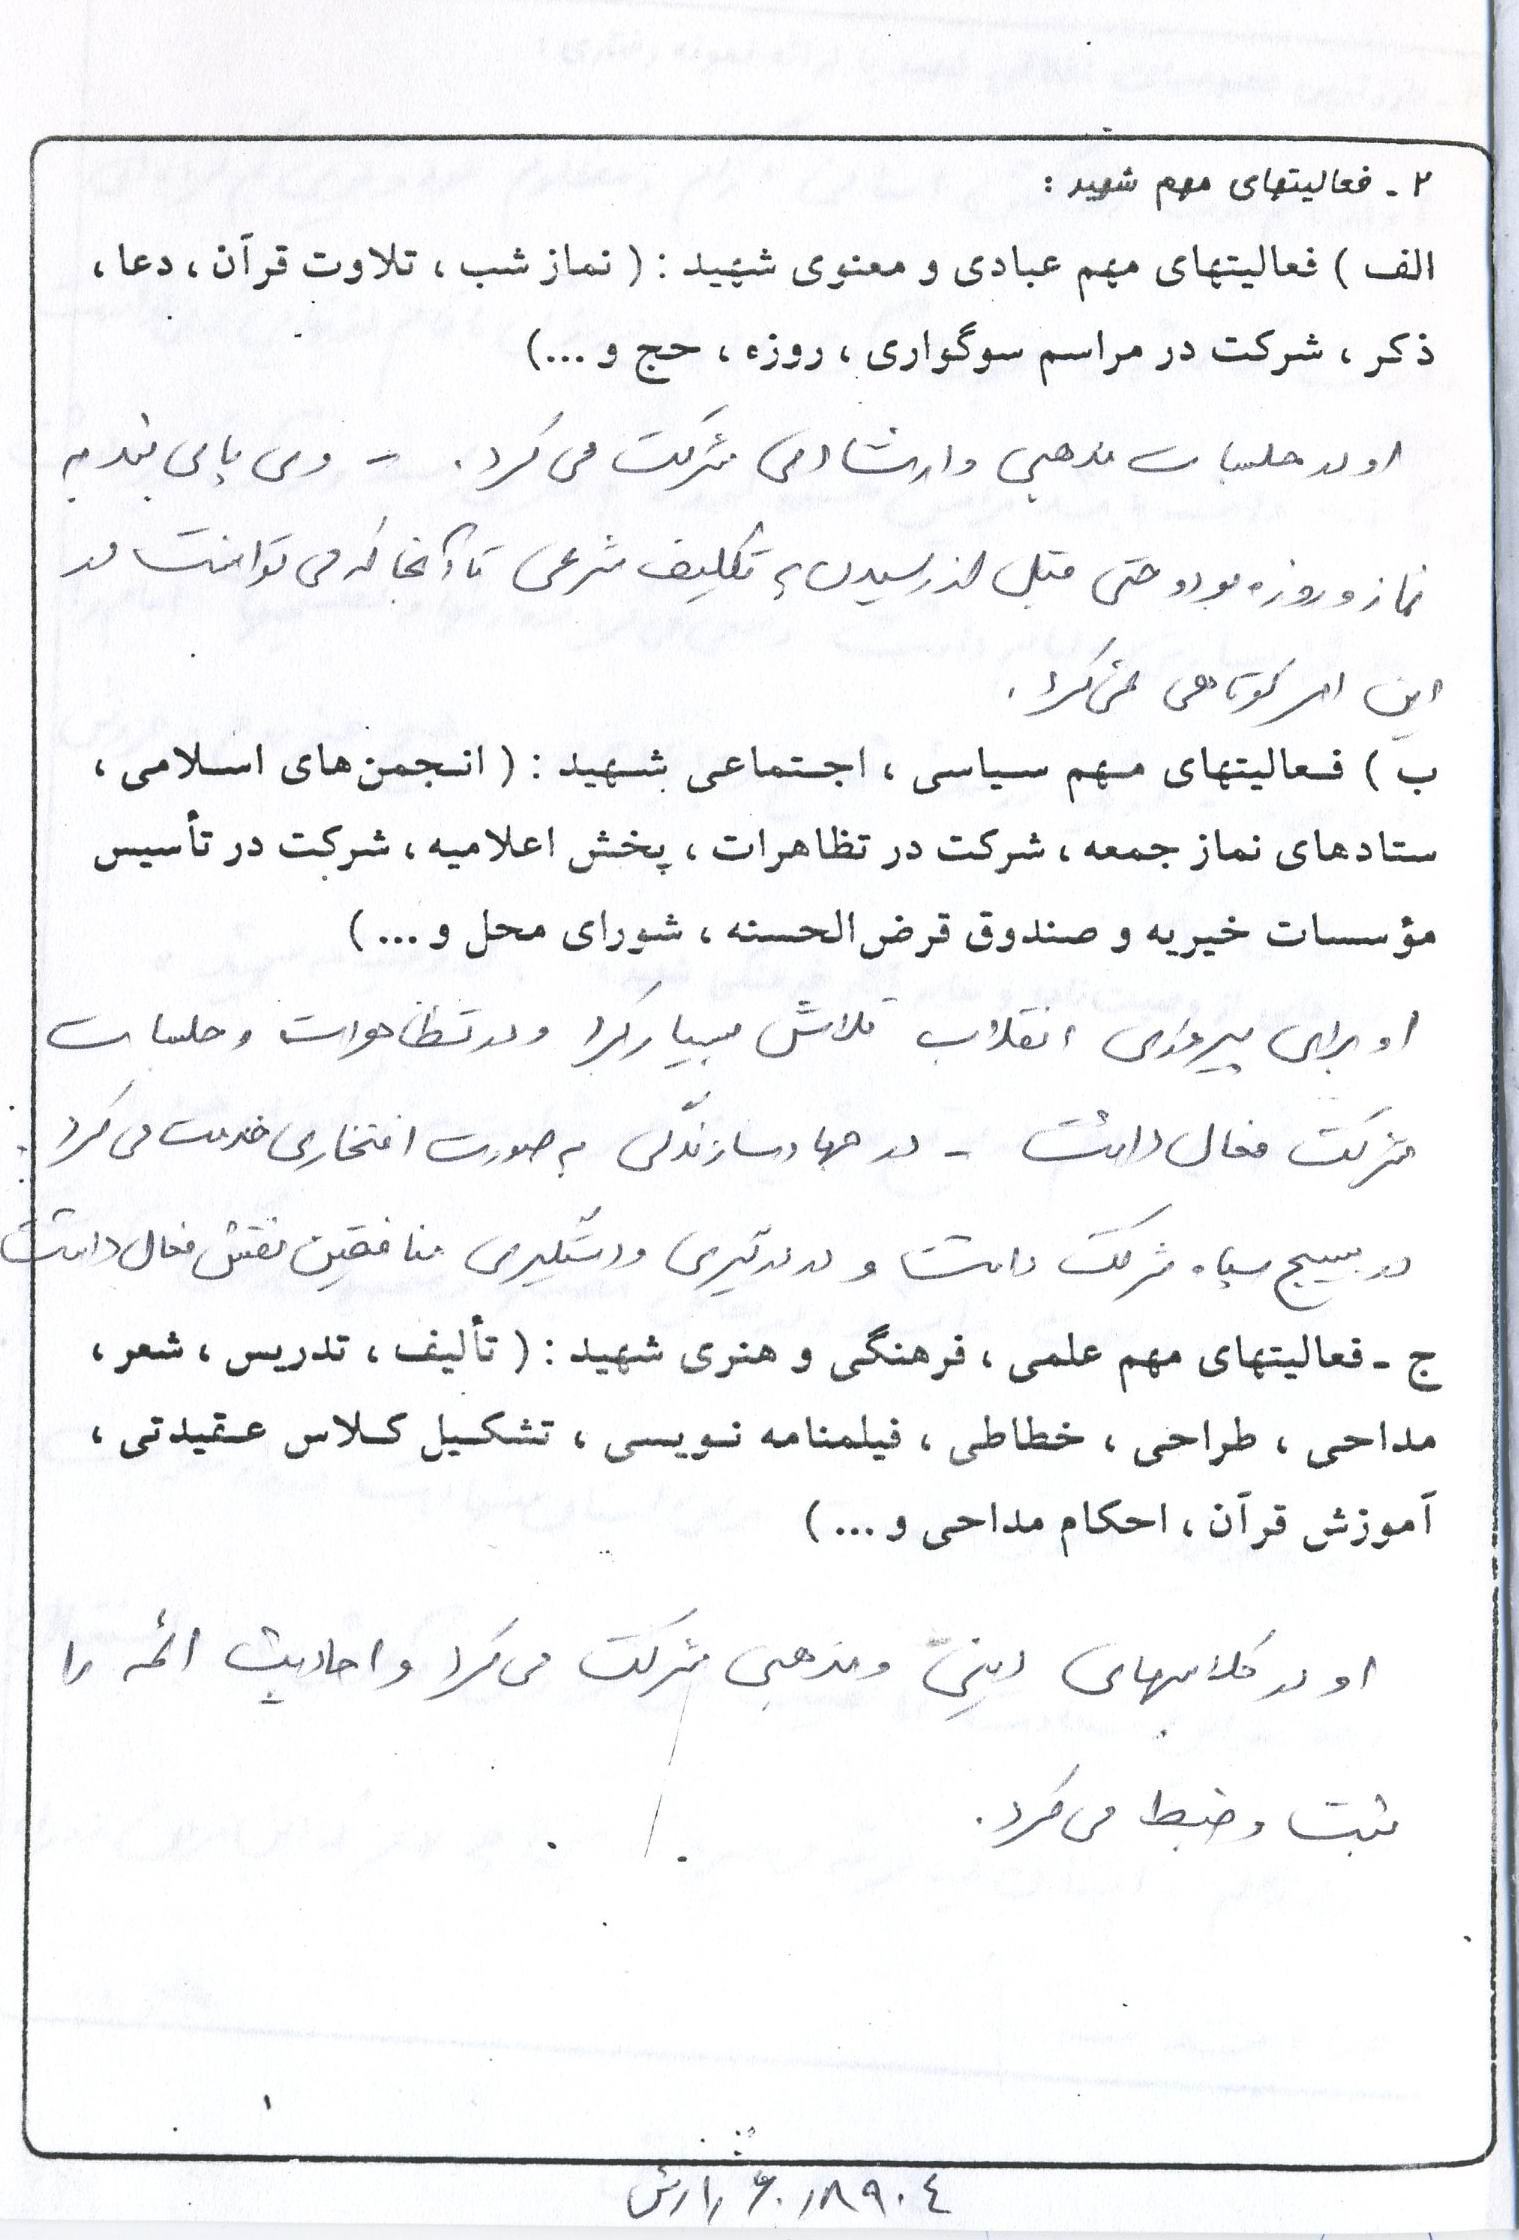 ۲ ـ فعالیتهای مهم شهید :
الف ) فعالیتهای مهم عبادی و معنوی شهید : ( نماز شب ، تلاوت قرآن ، دعا ،
ذکر ، شرکت در مراسم سوگواری ، روزه ، حج و ...)
او در جلسات مذهبی و ارشادی شرکت می کرد . - وی پای بند به
نماز و روزه بود و حتی قبل از رسیدن به تکلیف شرعی تا آنجا که می توانست در
این امر کوتاهی نمی کرد .
ب ) فعالیتهای مهم سیاسی ، اجتماعی شهید : ( انجمن های اسلامی ،
ستادهای نماز جمعه ، شرکت در تظاهرات ، پخش اعلامیه ، شرکت در تأسیس
مؤسسات خیریه و صندوق قرض الحسنه ، شورای محل و ... )
او برای پیروزی انقلاب تلاش بسیار کرد و در تظاهرات و جلسات
شرکت فعال داشت - در جهاد سازندگی به صورت افتخاری خدمت می کرد .
در بسیج سپاه شرکت داشت و در درگیری و دستگیری منافقین نقش فعال داشت
ج ـ فعالیتهای مهم علمی ، فرهنگی و هنری شهید : ( تألیف ، تدریس ، شعر ،
مداحی ، طراحی ، خطاطی ، فیلمنامه نویسی ، تشکیل کلاس عقیدتی ،
آموزش قرآن ، احکام مداحی و ... )
او در کلاسهای دینی و مذهبی شرکت می کرد و احادیث ائمه را
ثبت و ضبط می کرد .